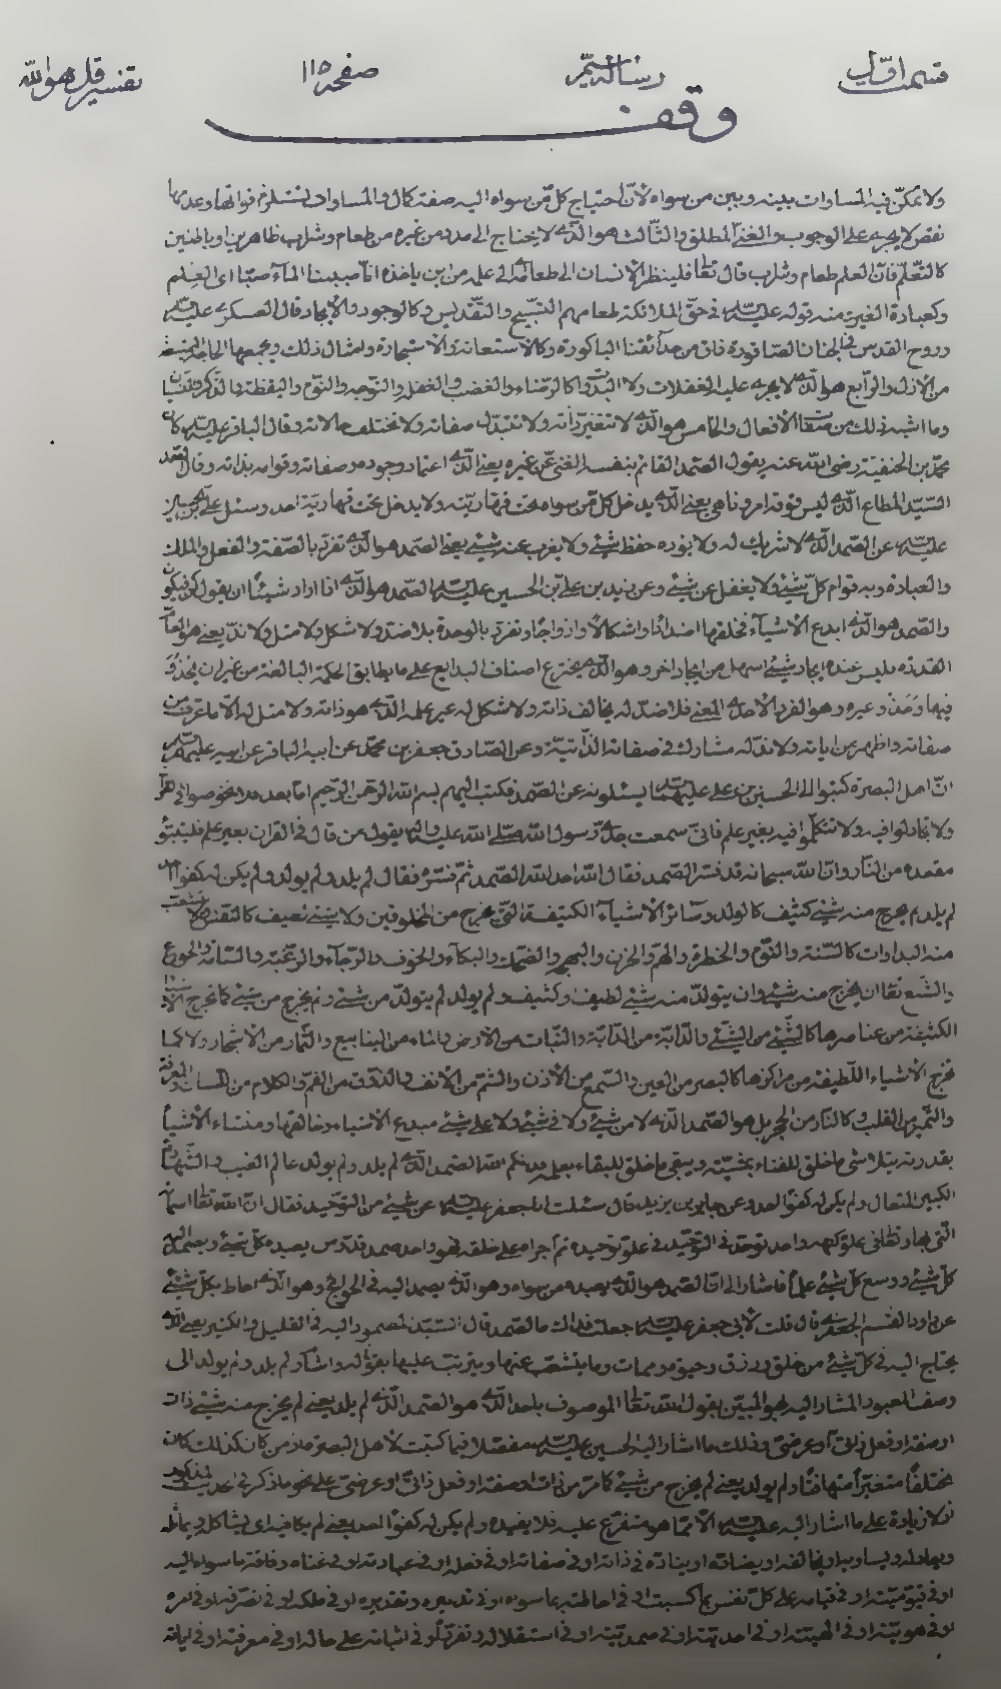 قسمت اول رسالة ستم صفحه ١١٥ تفسير قل هو الله
وقف
ولا يمكن فيه المساوات بينه وبين من سواه لأن احتياج كل من سواه اليه صفة كمال والمساوات تستلزم فواتها وعدمها
نقص لا يجرى على الوجوب والغنى المطلق والثالث هو الذى لا يحتاج الى مدد من غيره من طعام وشراب ظاهرين او باطنين
كالتعلم فان العلم طعام وشراب قال تعالى فلينظر الانسان الى طعامه الى علمه من اين ياخذه انا صببنا الماء صبا اى العلم
وكعبادة الغير منه قوله عليه السلام فى حق الملائكة طعامهم التسبيح والتقديس وكالوجود والايجاد قال العسكرى عليه السلام
وروح القدس فى الجنان الصاقورة ذاق من حدائقنا الباكورة وكالاستعانة والاستجارة وامثال ذلك ويجمعها الحاجة
من الازل والرابع هو الذى لا يجرى عليه الغفلات ولا البدوات كالرضاء والغضب والغفلة والتوجه والنوم واليقظة والذكر
وما اشبه ذلك من صفات الأفعال والخامس هو الذى لا تتغير ذاته ولا تتبدل صفاته ولا تختلف حالاته وقال الباقر عليه السلام كان
محمد بن الحنفية رضى الله عنه يقول الصمد القائم بنفسه الغنى عن غيره يعنى الذى اعتماد وجوده وصفاته وقوامه بذاته وقال الصمد
السيد المطاع الذى ليس فوقه امر وناهى يعنى الذى يدخل كل من سواه تحت قهاريته ولا يدخل تحت قهارية احد وسئل على بن الحسين
عليه السلام عن الصمد الذى لا شريك له ولا يؤده حفظ شيئ ولا يعزب عنه شيئ يعنى الصمد هو الذى تفرد بالصفة والفعل والملك
والعبادة وبه قوام كل شيئ ولا يغفل عن شيئ وعن زيد بن على بن الحسين عليه السلام الصمد هو الذى اذا اراد شيئا ان يقول كن فيكون
والصمد هو الذى ابدع الأشياء فخلقها اضدادا واشكالا وازواجا وتفرد بالوحدة بلا ضد ولا شكل ولا مثل ولا ند يعنى هو العام
القدرة فليس عنده ايجاد شيئ اسهل من ايجاد اخر وهو الذى يخترع اصناف البدايع على ما يطابق الحكمة البالغة من غير ان يحذو
فيها حذو غيره وهو الفرد الأحدى المعنى فلا ضد له يخالف ذاته ولا شكل له غير علمه الذى هو ذاته ولا مثل له الا ما عرف من
صفاته واظهر من اياته ولا ند له مشارك فى صفاته الذاتية وعن الصادق جعفر بن محمد عن ابيه الباقر عن ابيه عليهم السلام
ان اهل البصرة كتبوا الى الحسين بن على عليهما السلام يسئلونه عن الصمد فكتب اليهم بسم الله الرحمن الرحيم اما بعد فلا تخوضوا فى القران
ولا تجادلوا فيه ولا تتكلموا فيه بغير علم فانى سمعت جدى رسول الله صلى الله عليه وآله يقول من قال فى القران بغير علم فليتبوء
مقعده من النار وان الله سبحانه قد فسر الصمد فقال الله احد الله الصمد ثم فسره فقال لم يلد ولم يولد ولم يكن له كفوا احد
لم يلد لم يخرج منه شيئ كثيف كالولد وسائر الاشياء الكثيفة التى يخرج من المخلوقين ولا شيئ لطيف كالنفس ولا يتشعب
منه البداوات كالسنة والنوم والخطرة والهم والحزن والبهجة والضحك والبكاء والخوف والرجاء والرغبة والسامة والجوع
والشبع تعالى ان يخرج منه شيئ وان يتولد منه شيئ لطيف او كثيف ولم يولد لم يتولد من شيئ ولم يخرج من شيئ كما تخرج الاشياء
الكثيفة من عناصرها كالشيئ من الشيئ والدابة من الدابة والنبات من الأرض والماء من الينابيع والثمار من الأشجار ولا كما
تخرج الأشياء اللطيفة من مراكزها كالبصر من العين والسمع من الأذن والشم من الأنف والذوق من الفم والكلام من اللسان والمعرفة
والتميز من القلب وكالنار من الحجر بل هو الصمد الذى لا من شيئ ولا فى شيئ ولا على شيئ مبدع الأشياء وخالقها ومنشاء الأشياء
بقدرته يتلاشى ما خلق للفناء بمشيته ويبقى ما خلق للبقاء بعلمه فذلكم الله الصمد الذى لم يلد ولم يولد عالم الغيب والشهادة
الكبير المتعال ولم يكن له كفوا احد وعن جابر بن يزيد قال سئلت ابا جعفر عليه السلام عن شيئ من التوحيد فقال ان الله تعالى اسمائه
التى يدعى بها وتعالى فى علو كنهه واحد توحد فى التوحيد فى علو توحيده ثم اجراه على خلقه فهو واحد صمد قدوس يعبده كل شيئ ويصمد اليه
كل شيئ ووسع كل شيئ علما فاشار الى ان الصمد هو الذى يعبده من سواه وهو الذى يصمد اليه فى الحوائج وهو الذى احاط بكل شيئ
عن داود القسم الجعفرى قال قلت لأبى جعفر عليه السلام جعلت فداك ما الصمد قال السيد المصمود اليه فى القليل والكثير يعنى الذى
يحتاج اليه فى كل شيئ من خلق ورزق وحيوة وممات وما ينشعب عنها ويترتب عليها بقوله واشار لم يلد ولم يولد الى
وصف المعبود المشار اليه بهو المبين بقول الله تعالى الموصوف باحد الذى هو الصمد الذى لم يلد يعنى لم يخرج منه شيئ ذات
او صفة او فعل ذاتى او عرضى وذلك ما اشار اليه الحسين عليه السلام مفصلا فيما كتب لأهل البصرة من كان كذلك كان
مختلفا متغيرا ولم يولد يعنى لم يخرج من شيئ كما مر من ذات او صفة او فعل ذاتى او عرضى على نحو ما ذكر فى الحديث المذكور
فلا زيادة على ما اشار اليه عليه السلام الا مما هو متفرع عليه فلا يفيده ولم يكن له كفوا احد يعنى لم يكافيه اى يشاكله ويماثله
ويعادله ويساويه او يخالفه او يضاده او يناده فى ذاته او فى صفاته او فى فعله او فى عبادته او فى غناه وفاقة ما سواه اليه
او فى قيوميته او فى قيامه على كل نفس بما كسبت او فى احاطته بما سواه او فى تدبيره وتقديره او فى ملكه او فى تصرفه او فى امره
او فى هويته او فى الهيته او فى احديته او فى صمديته او فى استقلاله وتفرده او فى اثباته على حاله او فى معرفته او فى اياته